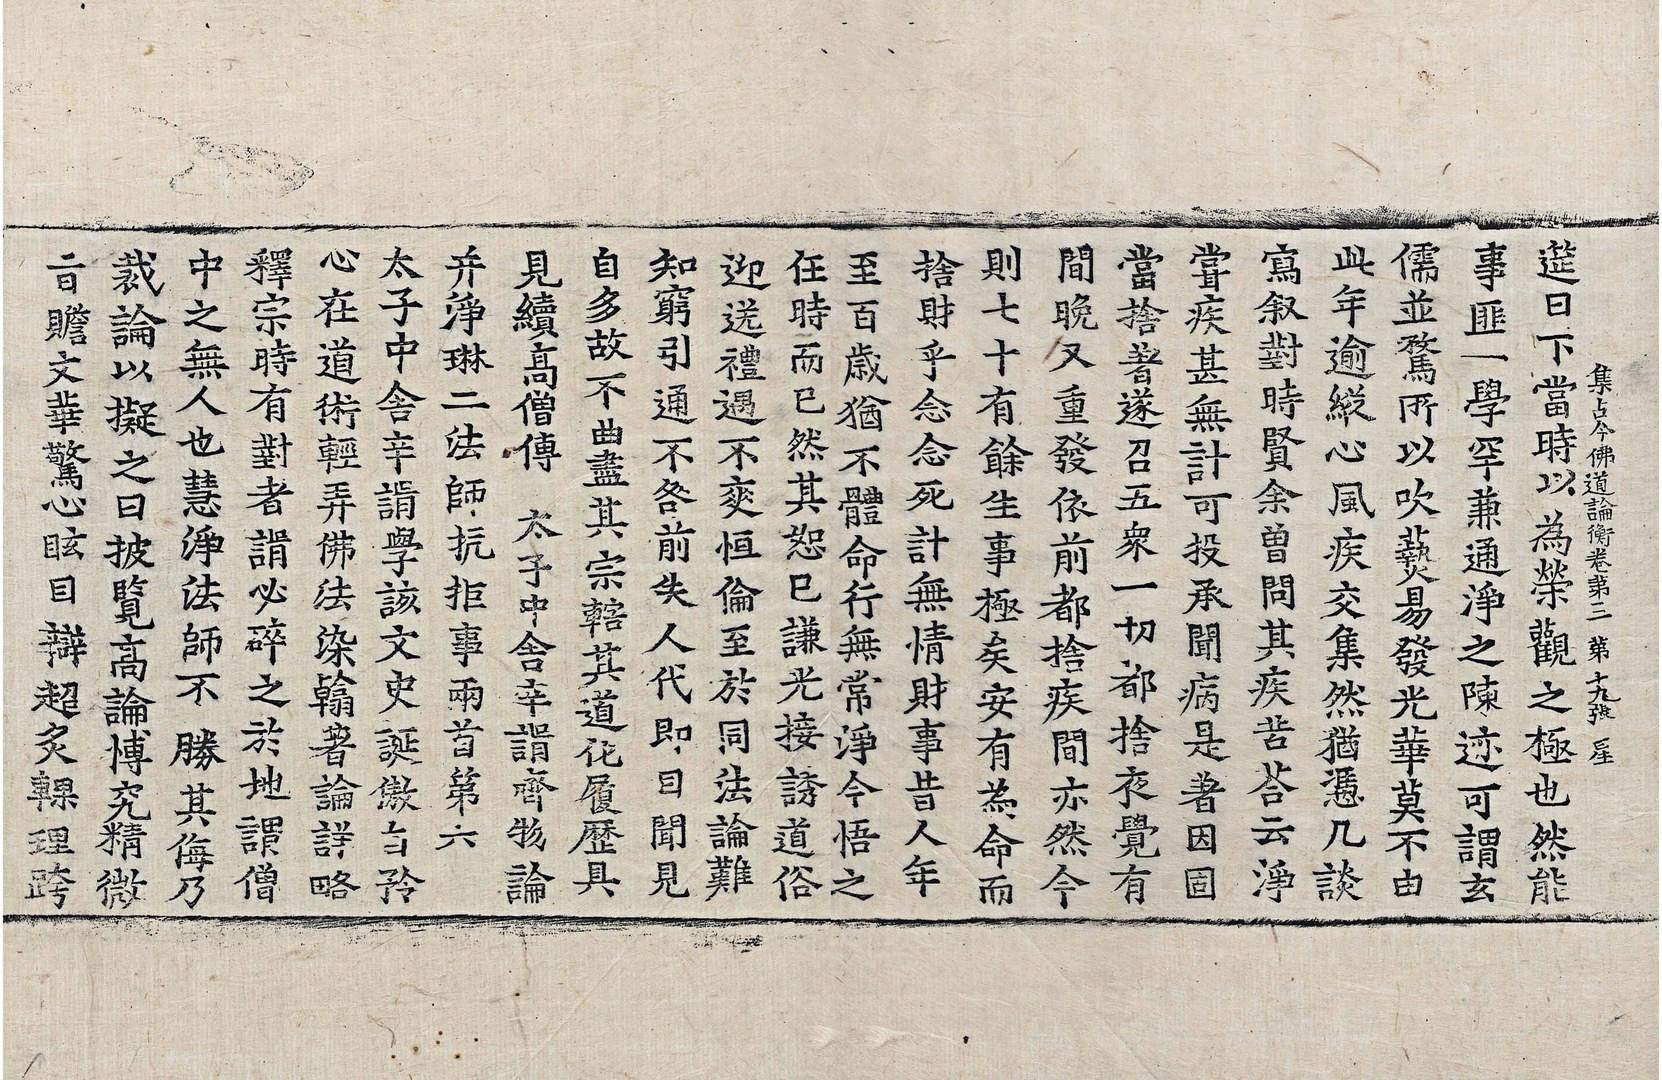 集古今佛道論衡卷第三 第十九張 星
莚日下當時以為榮觀之極也然能
事匪一學罕兼通淨之陳迹可謂玄
儒並騖所以吹藝易發光華莫不由
此年逾縱心風疾交集然猶憑几談
寫叙對時賢余曾問其疾苦荅云淨
甞疾甚無計可投承聞病是著因固
當捨著遂召五衆一切都捨夜覺有
間晚又重發依前都捨疾間亦然今
則七十有餘生事極矣安有為命而
捨財乎念念死計無情財事昔人年
至百歲猶不體命行無常淨今悟之
任時而已然其恕已謙光接誘道俗
迎送禮遇不爽恒倫至於同法論難
知窮引通不咎前失人代即目聞見
自多故不曲盡其宗轄其道化履歷具
見續高僧傳 太子中舍辛諝齊物論
并淨琳二法師抗拒事兩首第六
太子中舍辛諝學該文史誕傲自矜
心在道術輕弄佛法染翰著論詳略
釋宗時有對者諝必碎之於地謂僧
中之無人也慧淨法師不勝其侮乃
裁論以擬之曰披覽高論博究精微
旨贍文華驚心眩目辯超炙輠理跨